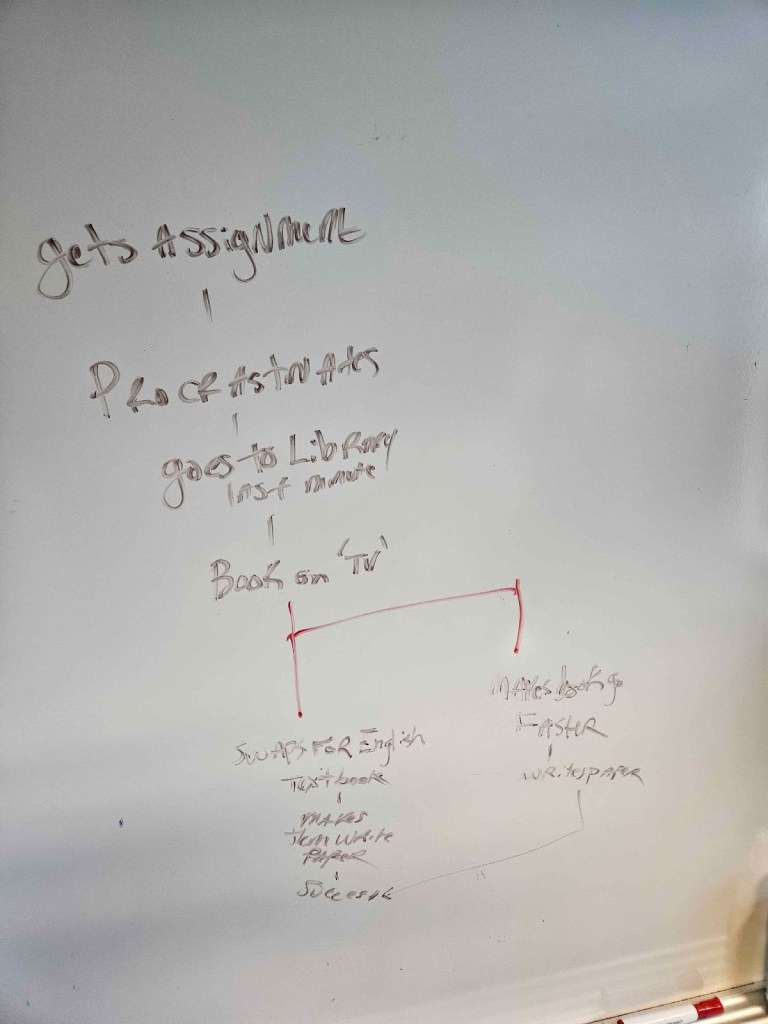 gets Assignment
Procrastinates
goes to Library
last minute
Book on 'TV'
Makes book go
Faster
writes paper
Swaps For English
Textbook
makes
them write
Paper
Success